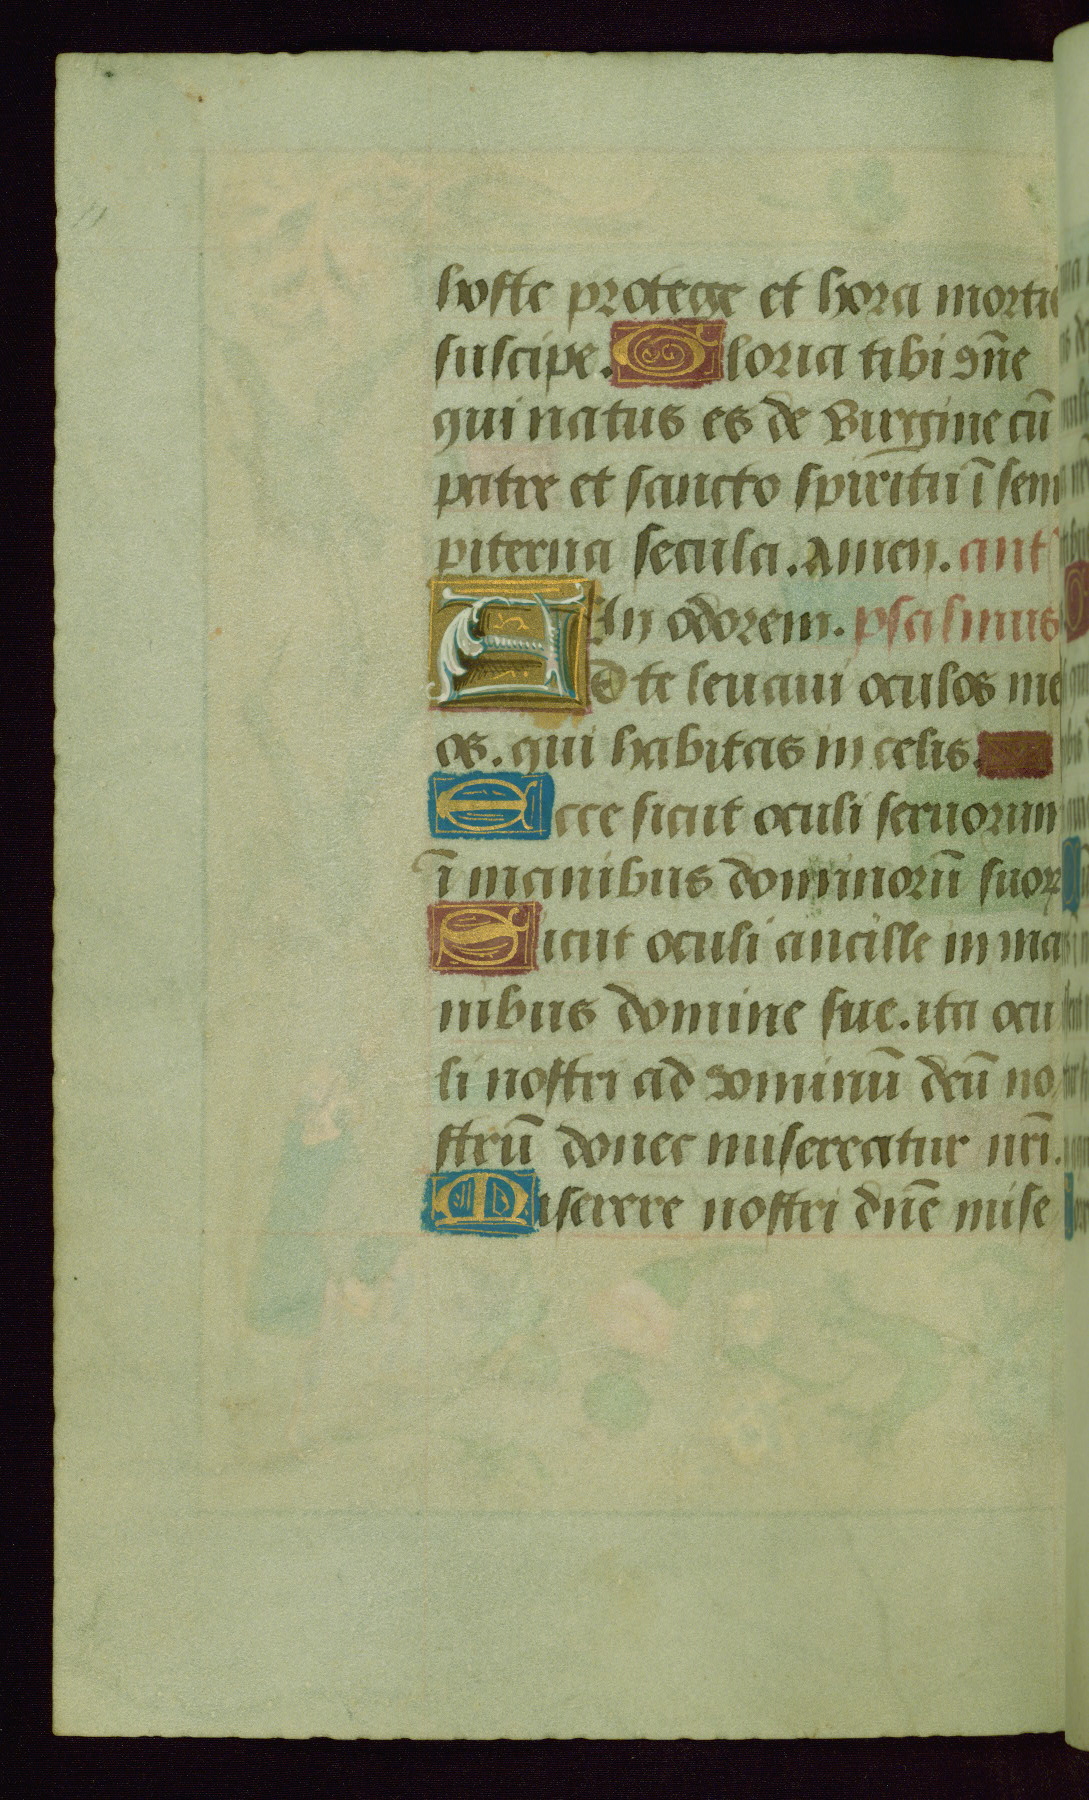 hoste protege et hora mortis
suscipe. Gloria tibi dn̄e
qui natus es de virgine cū
patre et sancto spiritu ī sem
piterna secula. Amen. ant'
In odorem. psalmus
Ad te leuaui oculos me
os. qui habitas in celis.
Ecce sicut oculi seruorum
ī manibus dominorū suoꝝ
Sicut oculi ancille in ma
nibus domine sue. ita ocu
li nostri ad dominū deū no
strū donec misereatur nr̄i.
Miserere nostri dn̄e mise